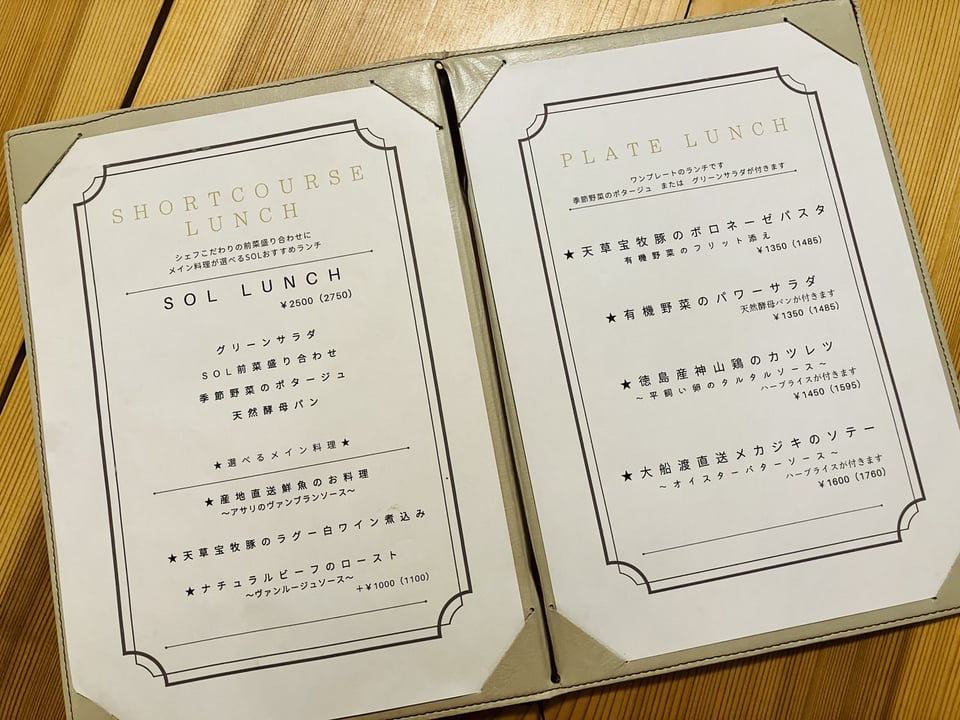 SHORTCOURSE
LUNCH
シェフこだわりの前菜盛り合わせに
メイン料理が選べるSOLおすすめランチ
SOL LUNCH
¥2500（2750）
グリーンサラダ
SOL前菜盛り合わせ
季節野菜のポタージュ
天然酵母パン
★選べるメイン料理★
★産地直送鮮魚のお料理
～アサリのヴァンブランソース～
★天草宝牧豚のラグー白ワイン煮込み
★ナチュラルビーフのロースト
～ヴァンルージュソース～
＋¥1000（1100）
PLATE LUNCH
ワンプレートのランチです
季節野菜のポタージュ または グリーンサラダが付きます
★天草宝牧豚のボロネーゼパスタ
有機野菜のフリット添え
¥1350（1485）
★有機野菜のパワーサラダ
天然酵母パンが付きます
¥1350（1485）
★徳島産神山鶏のカツレツ
～平飼い卵のタルタルソース～
ハーブライスが付きます
¥1450（1595）
★大船渡直送メカジキのソテー
～オイスターバターソース～
ハーブライスが付きます
¥1600（1760）